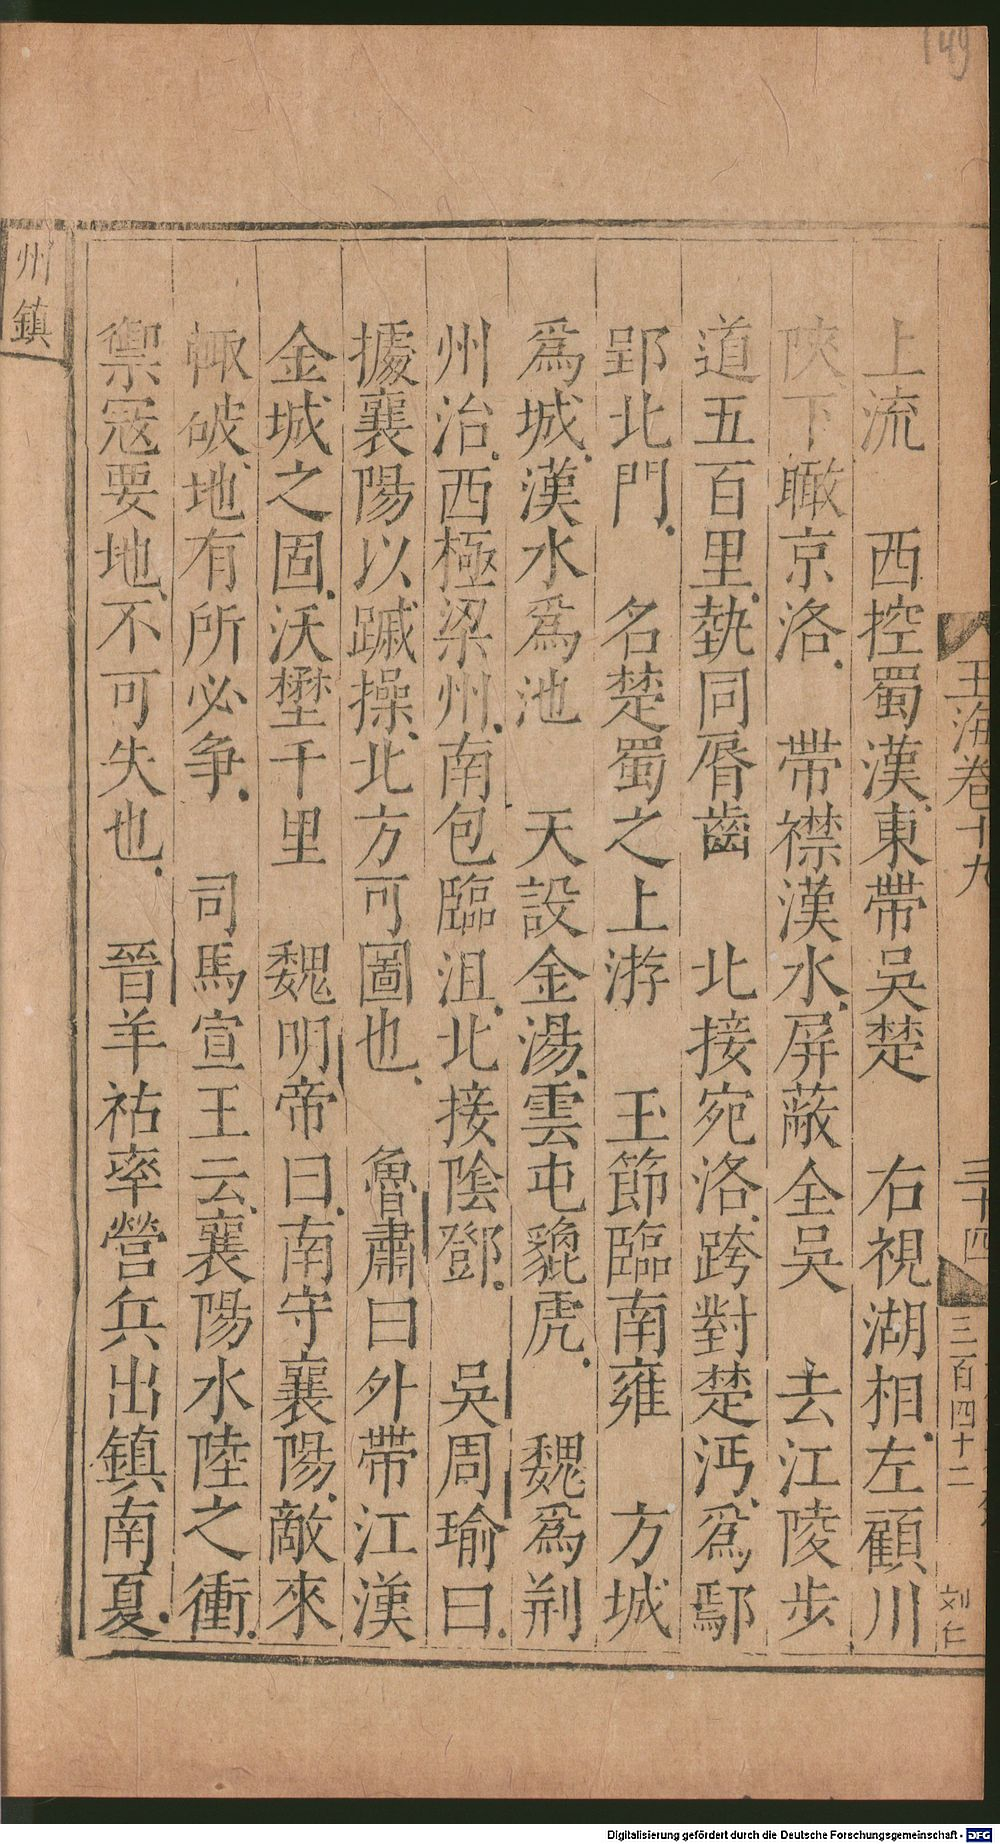 上流　西控蜀漢東帶吳楚　右視湖相左顧川
陝下瞰京洛　帶襟漢水屏蔽全吳　去江陵步
道五百里埶同脣齒　北接宛洛跨對楚沔爲鄢
郢北門　名楚蜀之上游　玉節臨南雍　方城
爲城漢水爲池　天設金湯雲屯貔虎　魏爲荆
州治西極梁州南包臨沮北接陰鄧　吳周瑜曰
據襄陽以蹴操北方可圖也　魯肅曰外帶江漢
金城之固沃壄千里　魏明帝曰南守襄陽敵來
輒破地有所必争　司馬宣王云襄陽水陸之衝
禦寇要地不可失也　晉羊祜率營兵出鎮南夏
州鎮
玉海卷十九
三十四
三百四十二
刘仁
149
Digitalisierung gefördert durch die Deutsche Forschungsgemeinschaft - DFG